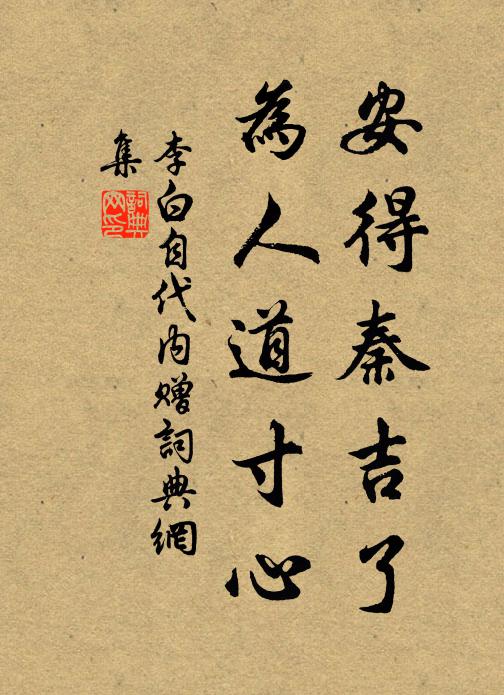 安得秦吉了
為人道寸心
李白自代内赠詞典網
集
詞典
网印